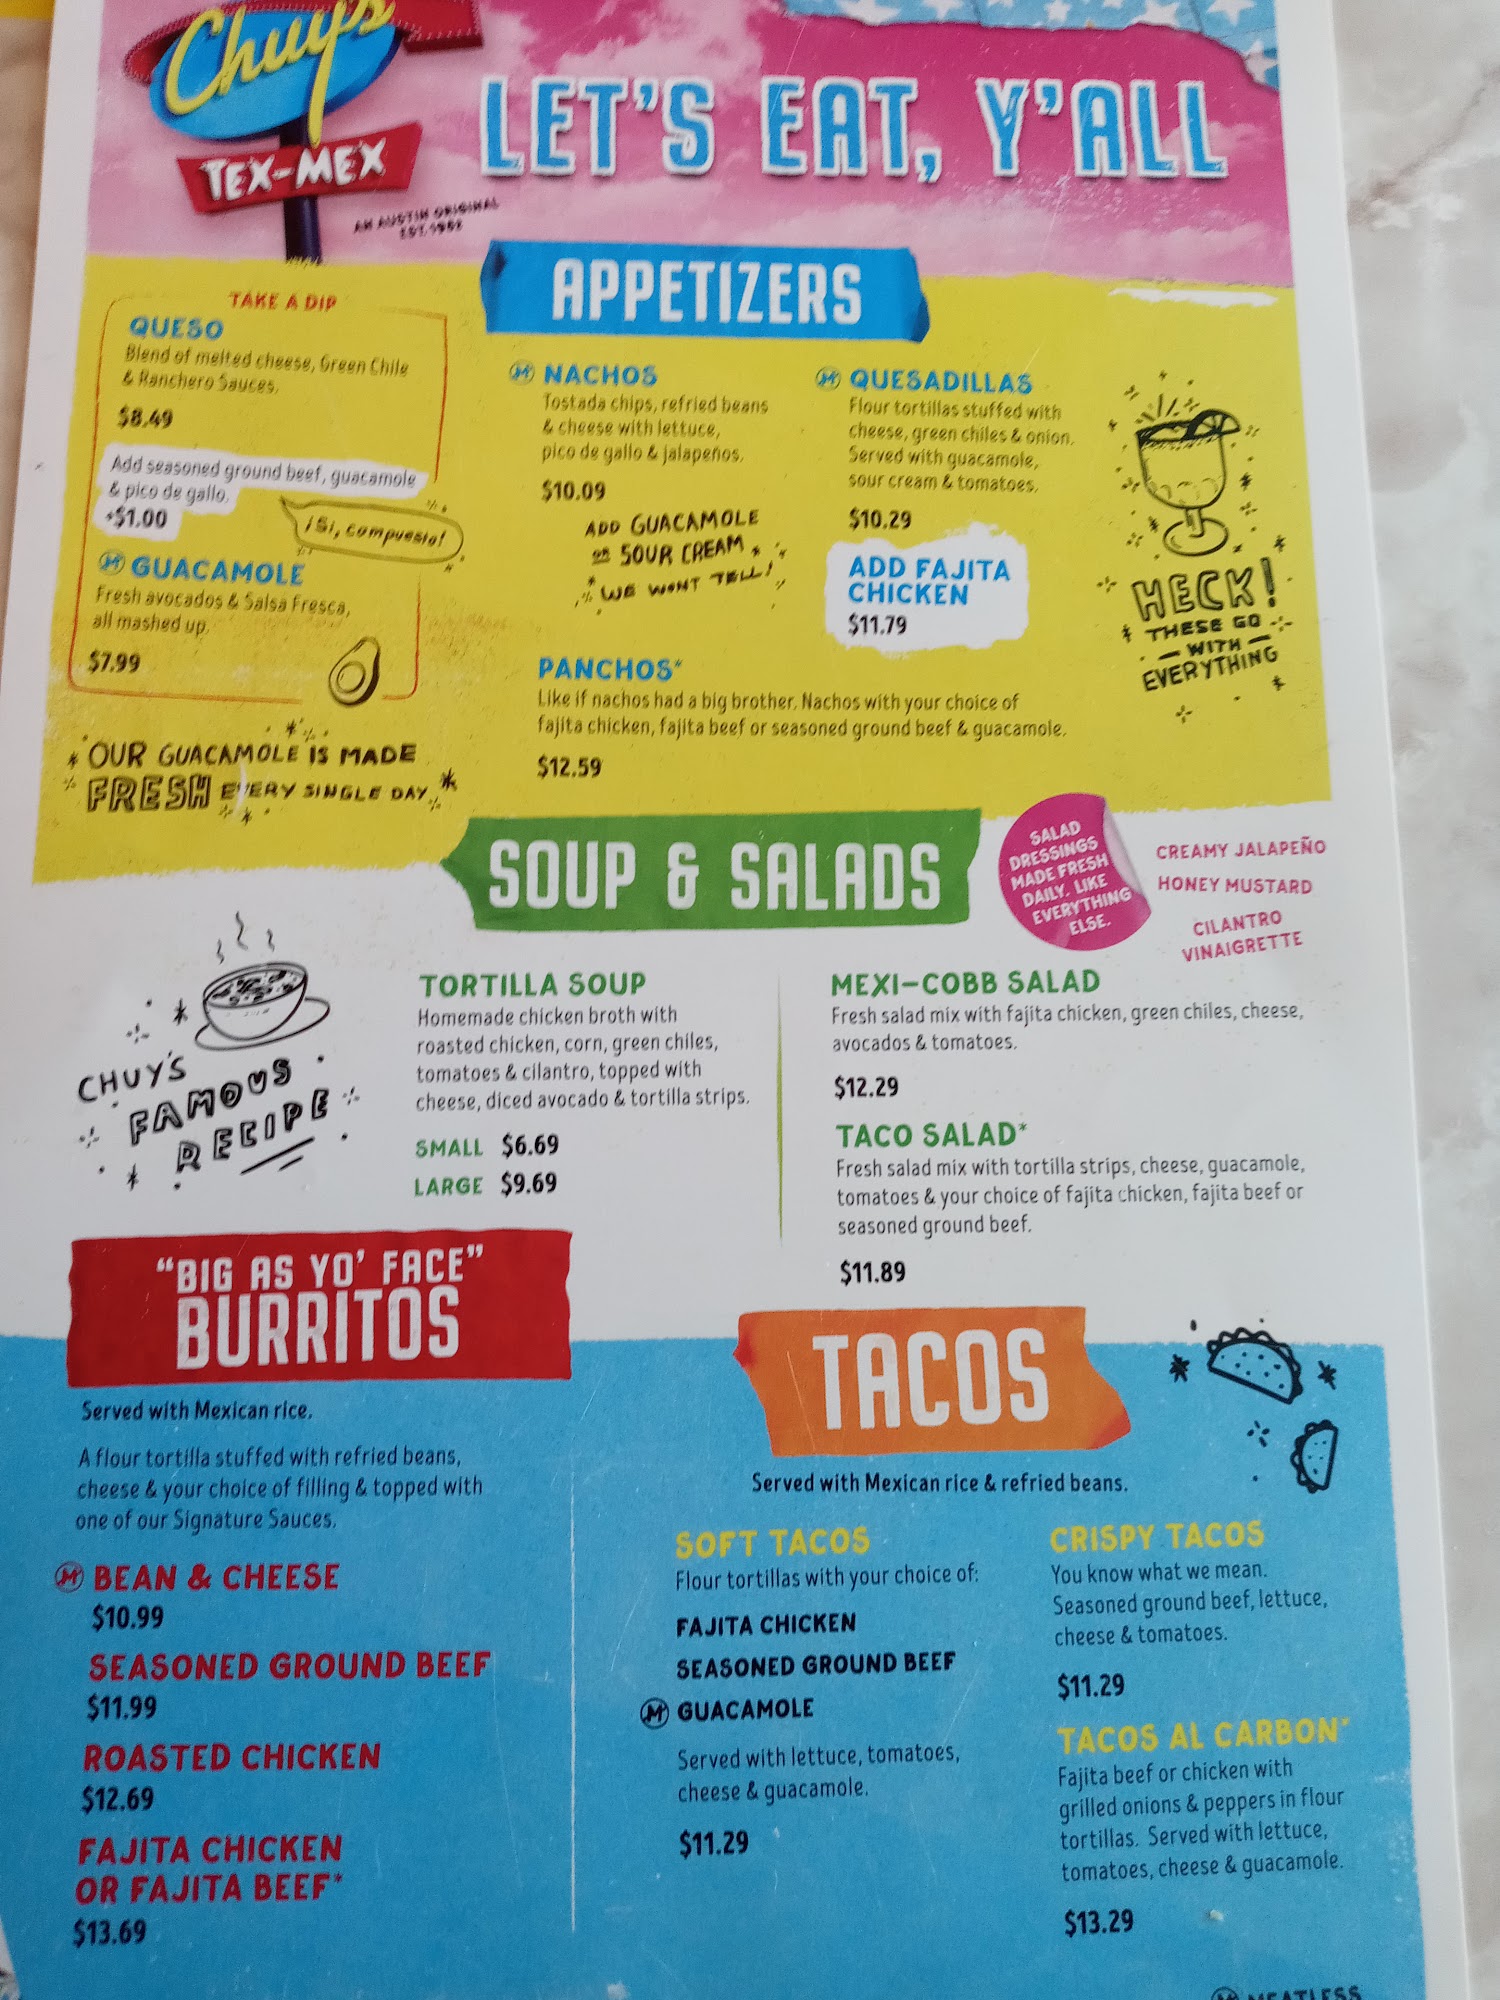 Chuy's
TEX-MEX
AN AUSTIN ORIGINAL
EST. 1982
LET'S EAT, Y'ALL
APPETIZERS
TAKE A DIP
QUESO
Blend of melted cheese, Green Chile
& Ranchero Sauces.
$8.49
Add seasoned ground beef, guacamole
& pico de gallo.
+$1.00
¡Si, compuesto!
M GUACAMOLE
Fresh avocados & Salsa Fresca,
all mashed up.
$7.99
OUR GUACAMOLE IS MADE
FRESH EVERY SINGLE DAY
M NACHOS
Tostada chips, refried beans
& cheese with lettuce,
pico de gallo & jalapeños.
$10.09
ADD GUACAMOLE
OR SOUR CREAM
WE WON'T TELL!
M QUESADILLAS
Flour tortillas stuffed with
cheese, green chiles & onion.
Served with guacamole,
sour cream & tomatoes.
$10.29
ADD FAJITA
CHICKEN
$11.79
PANCHOS*
Like if nachos had a big brother. Nachos with your choice of
fajita chicken, fajita beef or seasoned ground beef & guacamole.
$12.59
HECK!
THESE GO
WITH
EVERYTHING
SOUP & SALADS
SALAD
DRESSINGS
MADE FRESH
DAILY. LIKE
EVERYTHING
ELSE.
CREAMY JALAPEÑO
HONEY MUSTARD
CILANTRO
VINAIGRETTE
CHUY'S
FAMOUS
RECIPE
TORTILLA SOUP
Homemade chicken broth with
roasted chicken, corn, green chiles,
tomatoes & cilantro, topped with
cheese, diced avocado & tortilla strips.
SMALL $6.69
LARGE $9.69
MEXI-COBB SALAD
Fresh salad mix with fajita chicken, green chiles, cheese,
avocados & tomatoes.
$12.29
TACO SALAD*
Fresh salad mix with tortilla strips, cheese, guacamole,
tomatoes & your choice of fajita chicken, fajita beef or
seasoned ground beef.
$11.89
"BIG AS YO' FACE"
BURRITOS
Served with Mexican rice.
A flour tortilla stuffed with refried beans,
cheese & your choice of filling & topped with
one of our Signature Sauces.
M BEAN & CHEESE
$10.99
SEASONED GROUND BEEF
$11.99
ROASTED CHICKEN
$12.69
FAJITA CHICKEN
OR FAJITA BEEF*
$13.69
TACOS
Served with Mexican rice & refried beans.
SOFT TACOS
Flour tortillas with your choice of:
FAJITA CHICKEN
SEASONED GROUND BEEF
M GUACAMOLE
Served with lettuce, tomatoes,
cheese & guacamole.
$11.29
CRISPY TACOS
You know what we mean.
Seasoned ground beef, lettuce,
cheese & tomatoes.
$11.29
TACOS AL CARBON*
Fajita beef or chicken with
grilled onions & peppers in flour
tortillas. Served with lettuce,
tomatoes, cheese & guacamole.
$13.29
M MEATLESS